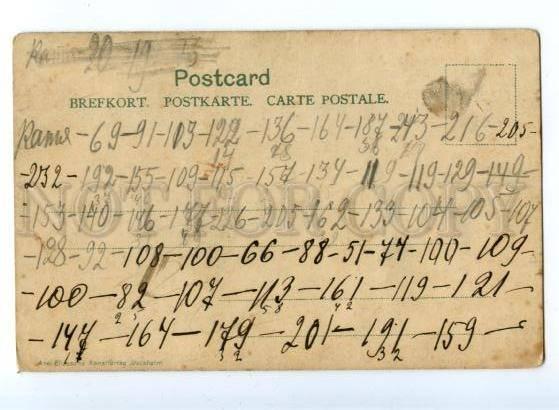 20 19
Postcard
BREFKORT. POSTKARTE. CARTE POSTALE.
- 69 - 91 - 113 - 122 - 136 - 164 - 187 - 243 - 216 - 205 -
- 232 - 192 - 155 - 109 - 115 - 157 - 134 - 119 - 119 - 129 - 149 -
NOT FOR COPY
- 153 - 140 - 146 - 177 - 226 - 205 - 162 - 133 - 104 - 105 - 107
- 128 - 92 - 108 - 100 - 66 - 88 - 51 - 74 - 100 - 109 -
- 100 - 82 - 107 - 113 - 161 - 119 - 121 -
- 147 - 164 - 179 - 201 - 191 - 159 -
Axel Eliassons Konstförlag Stockholm